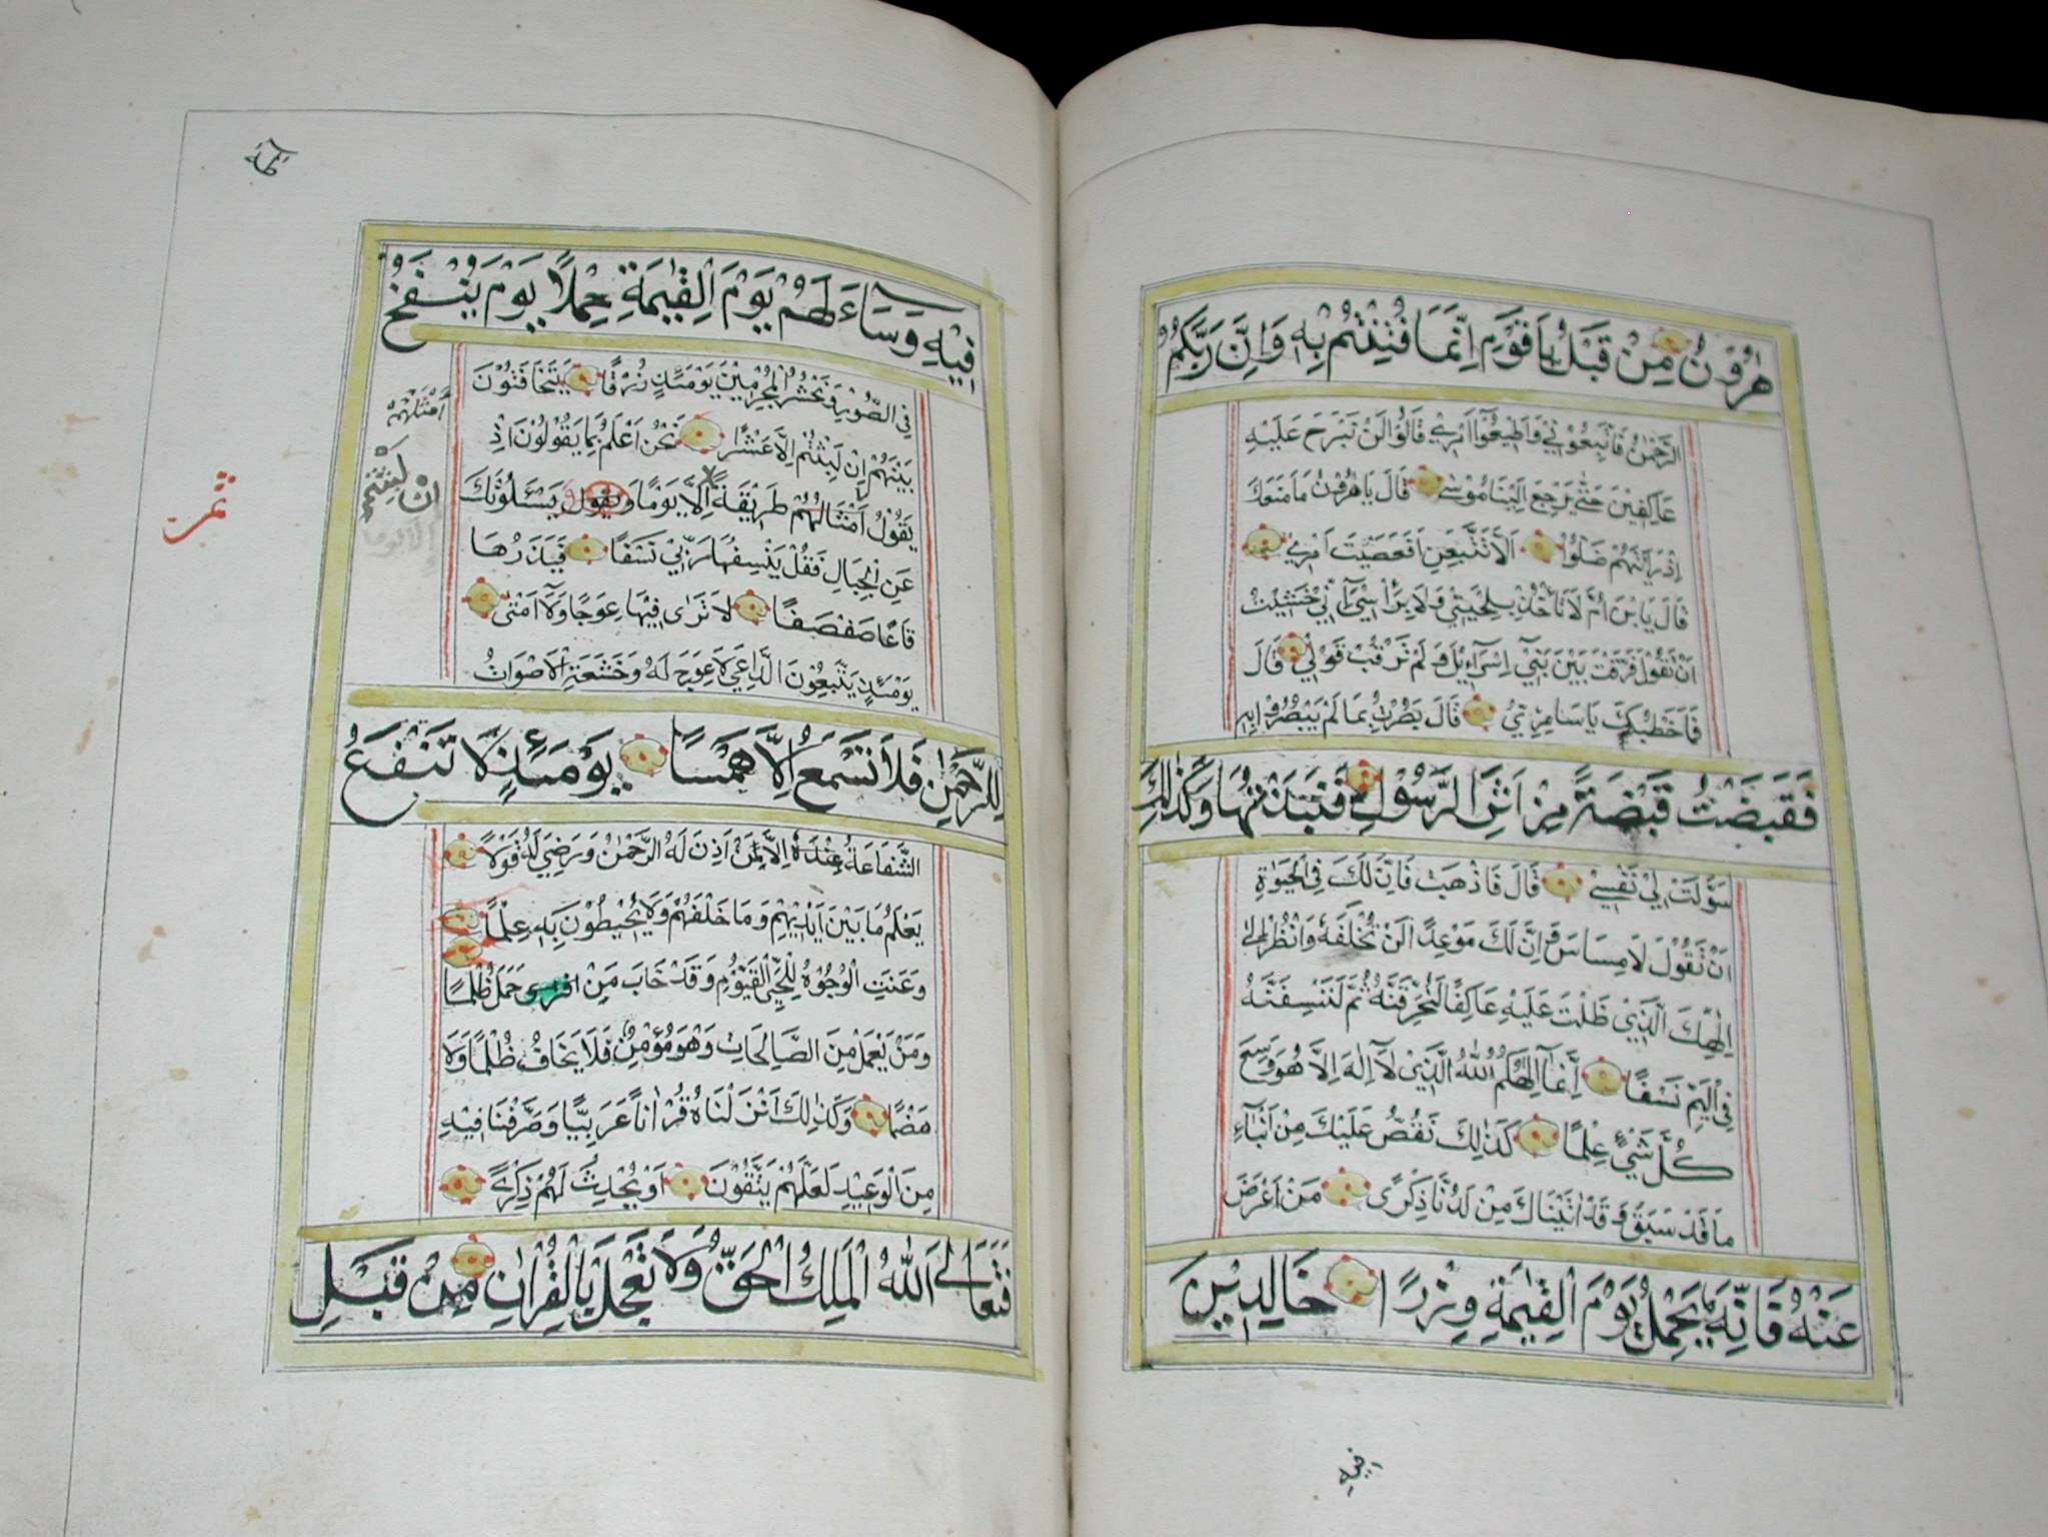 هٰرُونُ مِنْ قَبْلُ يَا قَوْمِ اِنَّمَا فُتِنْتُمْ بِهِ وَاِنَّ رَبَّكُمُ
الرَّحْمٰنُ فَاتَّبِعُوْنِي وَاَطِيعُوٓا اَمْرِي قَالُوْا لَنْ نَبْرَحَ عَلَيْهِ
عَاكِفِيْنَ حَتّٰى يَرْجِعَ اِلَيْنَا مُوْسٰى قَالَ يَا هٰرُوْنُ مَا مَنَعَكَ
اِذْ رَاَيْتَهُمْ ضَلُّوْا اَلَّا تَتَّبِعَنِ اَفَعَصَيْتَ اَمْرِي
قَالَ يَا بْنَ اُمَّ لَا تَأْخُذْ بِلِحْيَتِي وَلَا بِرَأْسِي اِنِّي خَشِيْتُ
اَنْ تَقُوْلَ فَرَّقْتَ بَيْنَ بَنِيٓ اِسْرَآءِيْلَ وَلَمْ تَرْقُبْ قَوْلِي قَالَ
فَمَا خَطْبُكَ يَا سَامِرِيُّ قَالَ بَصُرْتُ بِمَا لَمْ يَبْصُرُوا بِهِ
فَقَبَضْتُ قَبْضَةً مِنْ اَثَرِ الرَّسُوْلِ فَنَبَذْتُهَا وَكَذٰلِكَ
سَوَّلَتْ لِيْ نَفْسِي قَالَ فَاذْهَبْ فَاِنَّ لَكَ فِي الْحَيٰوةِ
اَنْ تَقُوْلَ لَا مِسَاسَ وَاِنَّ لَكَ مَوْعِدًا لَنْ تُخْلَفَهُ وَانْظُرْ اِلٰى
اِلٰهِكَ الَّذِيْ ظَلْتَ عَلَيْهِ عَاكِفًا لَنُحَرِّقَنَّهُ ثُمَّ لَنَنْسِفَنَّهُ
فِي الْيَمِّ نَسْفًا اِنَّمَآ اِلٰهُكُمُ اللّٰهُ الَّذِيْ لَآ اِلٰهَ اِلَّا هُوَ وَسِعَ
كُلَّ شَيْءٍ عِلْمًا كَذٰلِكَ نَقُصُّ عَلَيْكَ مِنْ اَنْبَآءِ
مَا قَدْ سَبَقَ وَقَدْ اٰتَيْنَاكَ مِنْ لَدُنَّا ذِكْرًى مَنْ اَعْرَضَ
عَنْهُ فَاِنَّهُ يَحْمِلُ يَوْمَ الْقِيٰمَةِ وِزْرًا خَالِدِيْنَ
فيه
فِيْهِ وَسَآءَ لَهُمْ يَوْمَ الْقِيٰمَةِ حِمْلًا يَوْمَ يُنْفَخُ
فِي الصُّوْرِ وَنَحْشُرُ الْمُجْرِمِيْنَ يَوْمَئِذٍ زُرْقًا يَتَخَافَتُوْنَ
بَيْنَهُمْ اِنْ لَبِثْتُمْ اِلَّا عَشْرًا نَحْنُ اَعْلَمُ بِمَا يَقُوْلُوْنَ اِذْ
يَقُوْلُ اَمْثَالُهُمْ طَرِيْقَةً اِلَّا يَوْمًا وَيقول يَسْـَٔلُوْنَكَ
عَنِ الْجِبَالِ فَقُلْ يَنْسِفُهَا رَبِّي نَسْفًا فَيَذَرُهَا
قَاعًا صَفْصَفًا لَا تَرٰى فِيْهَا عِوَجًا وَلَآ اَمْتًا
يَوْمَئِذٍ يَتَّبِعُوْنَ الدَّاعِيَ لَا عِوَجَ لَهُ وَخَشَعَتِ الْاَصْوَاتُ
لِلرَّحْمٰنِ فَلَا تَسْمَعُ اِلَّا هَمْسًا يَوْمَئِذٍ لَا تَنْفَعُ
الشَّفَاعَةُ عِنْدَهُ اِلَّا لِمَنْ اَذِنَ لَهُ الرَّحْمٰنُ وَرَضِيَ لَهُ قَوْلًا
يَعْلَمُ مَا بَيْنَ اَيْدِيْهِمْ وَمَا خَلْفَهُمْ وَلَا يُحِيْطُوْنَ بِهِ عِلْمًا
وَعَنَتِ الْوُجُوْهُ لِلْحَيِّ الْقَيُّوْمِ وَقَدْ خَابَ مَنْ حَمَلَ ظُلْمًا
وَمَنْ يَعْمَلْ مِنَ الصَّالِحَاتِ وَهُوَ مُؤْمِنٌ فَلَا يَخَافُ ظُلْمًا وَلَا
هَضْمًا وَكَذٰلِكَ اَنْزَلْنَاهُ قُرْاٰنًا عَرَبِيًّا وَصَرَّفْنَا فِيْهِ
مِنَ الْوَعِيْدِ لَعَلَّهُمْ يَتَّقُوْنَ اَوْ يُحْدِثُ لَهُمْ ذِكْرًى
فَتَعَالَى اللّٰهُ الْمَلِكُ الْحَقُّ وَلَا تَعْجَلْ بِالْقُرْاٰنِ مِنْ قَبْلِ
اَمْثَلُهُمْ
اِنْ لَبِثْتُمْ
اِلَّا يوما